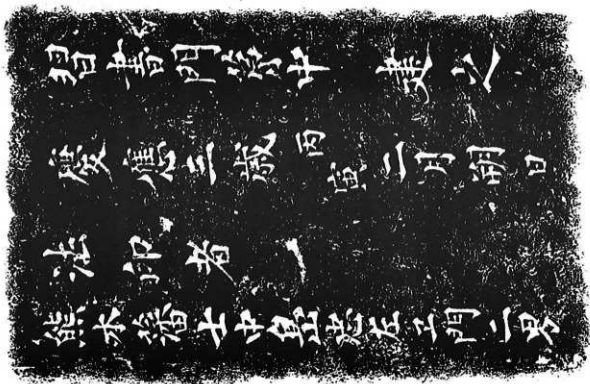 習書門弟中 建之
慶應二歳丙寅二月朔日
法印者
熊本藩士中島 左エ門二男